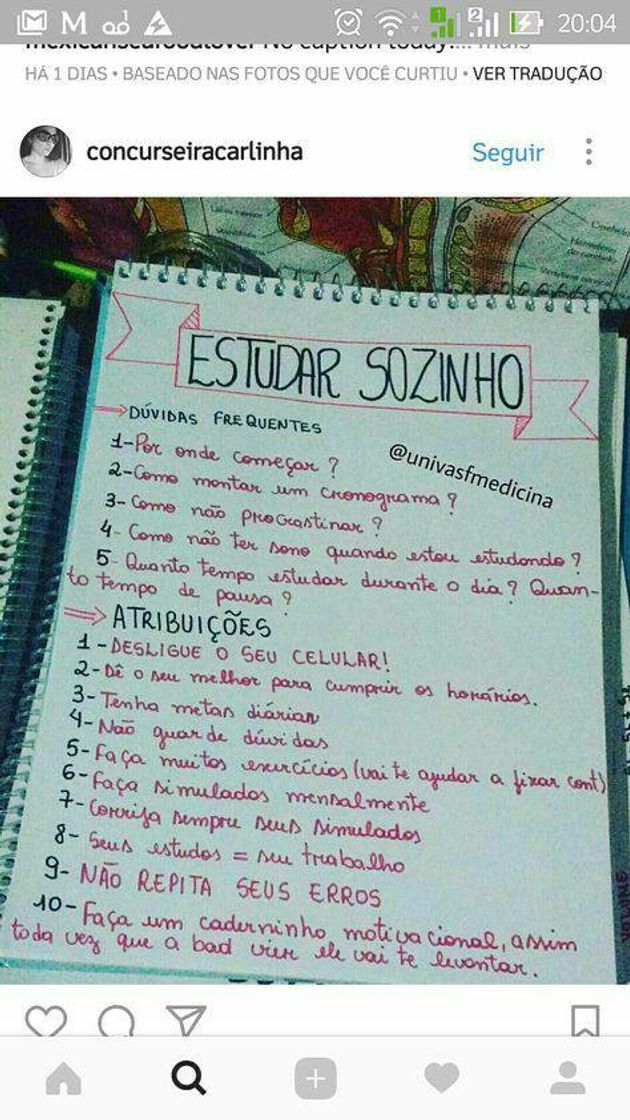 20:04
mexicanscarobatlover No caption today.... mais
HÁ 1 DIAS • BASEADO NAS FOTOS QUE VOCÊ CURTIU • VER TRADUÇÃO
concurseiracarlinha
Seguir
ESTUDAR SOZINHO
DÚVIDAS FREQUENTES
@univasfmedicina
1-Por onde começar?
2-Como montar um cronograma?
3-Como não procrastinar?
4-Como não ter sono quando estou estudando?
5-Quanto tempo estudar durante o dia? Quan-
to tempo de pausa?
ATRIBUIÇÕES
1-DESLIGUE O SEU CELULAR!
2-Dê o seu melhor para cumprir os horários.
3-Tenha metas diárias
4-Não guarde dúvidas
5-Faça muitos exercícios (vai te ajudar a fixar cont)
6-Faça simulados mensalmente
7-Corrija sempre seus simulados
8-Seus estudos = seu trabalho
9-NÃO REPITA SEUS ERROS
10-Faça um caderninho motivacional, assim
toda vez que a bad vier ele vai te levantar.